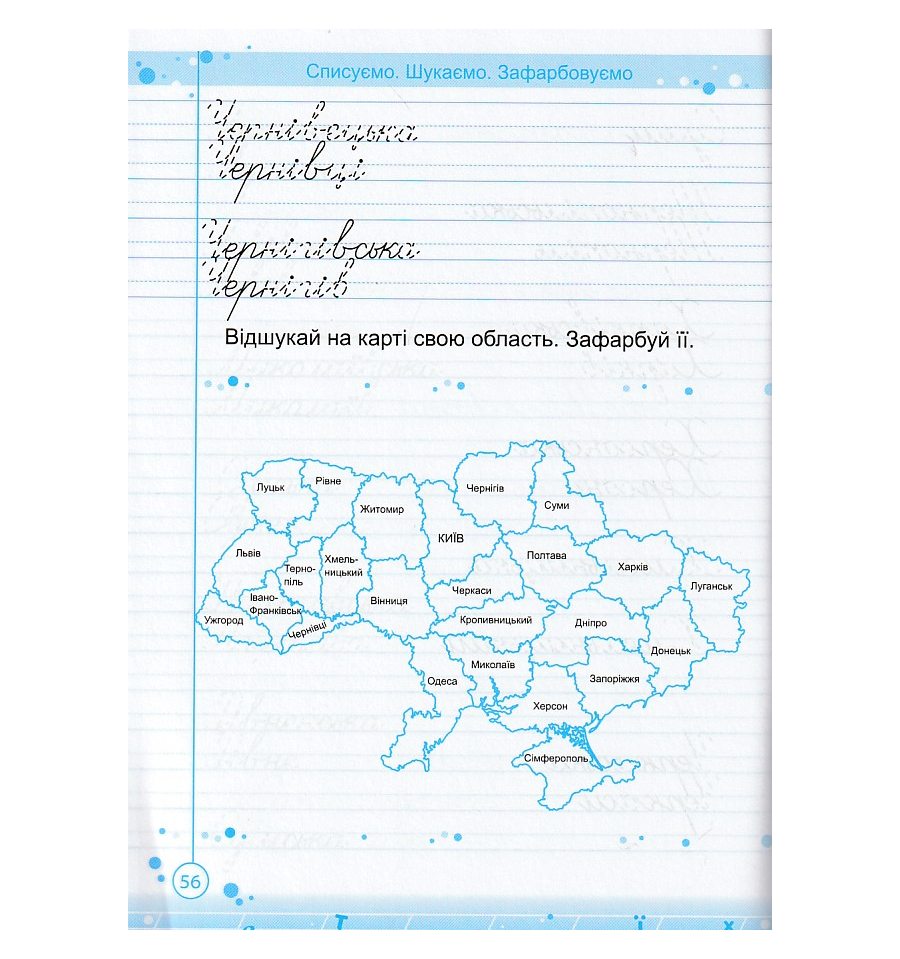 Списуємо. Шукаємо. Зафарбовуємо
Чернівецька
Чернівці
Чернігівська
Чернігів
Відшукай на карті свою область. Зафарбуй її.
Луцьк
Рівне
Житомир
Чернігів
Суми
КИЇВ
Львів
Терно-
піль
Хмель-
ницький
Полтава
Харків
Луганськ
Івано-
Франківськ
Ужгород
Чернівці
Вінниця
Черкаси
Кропивницький
Дніпро
Донецьк
Одеса
Миколаїв
Запоріжжя
Херсон
Сімферополь
56
Т ї х